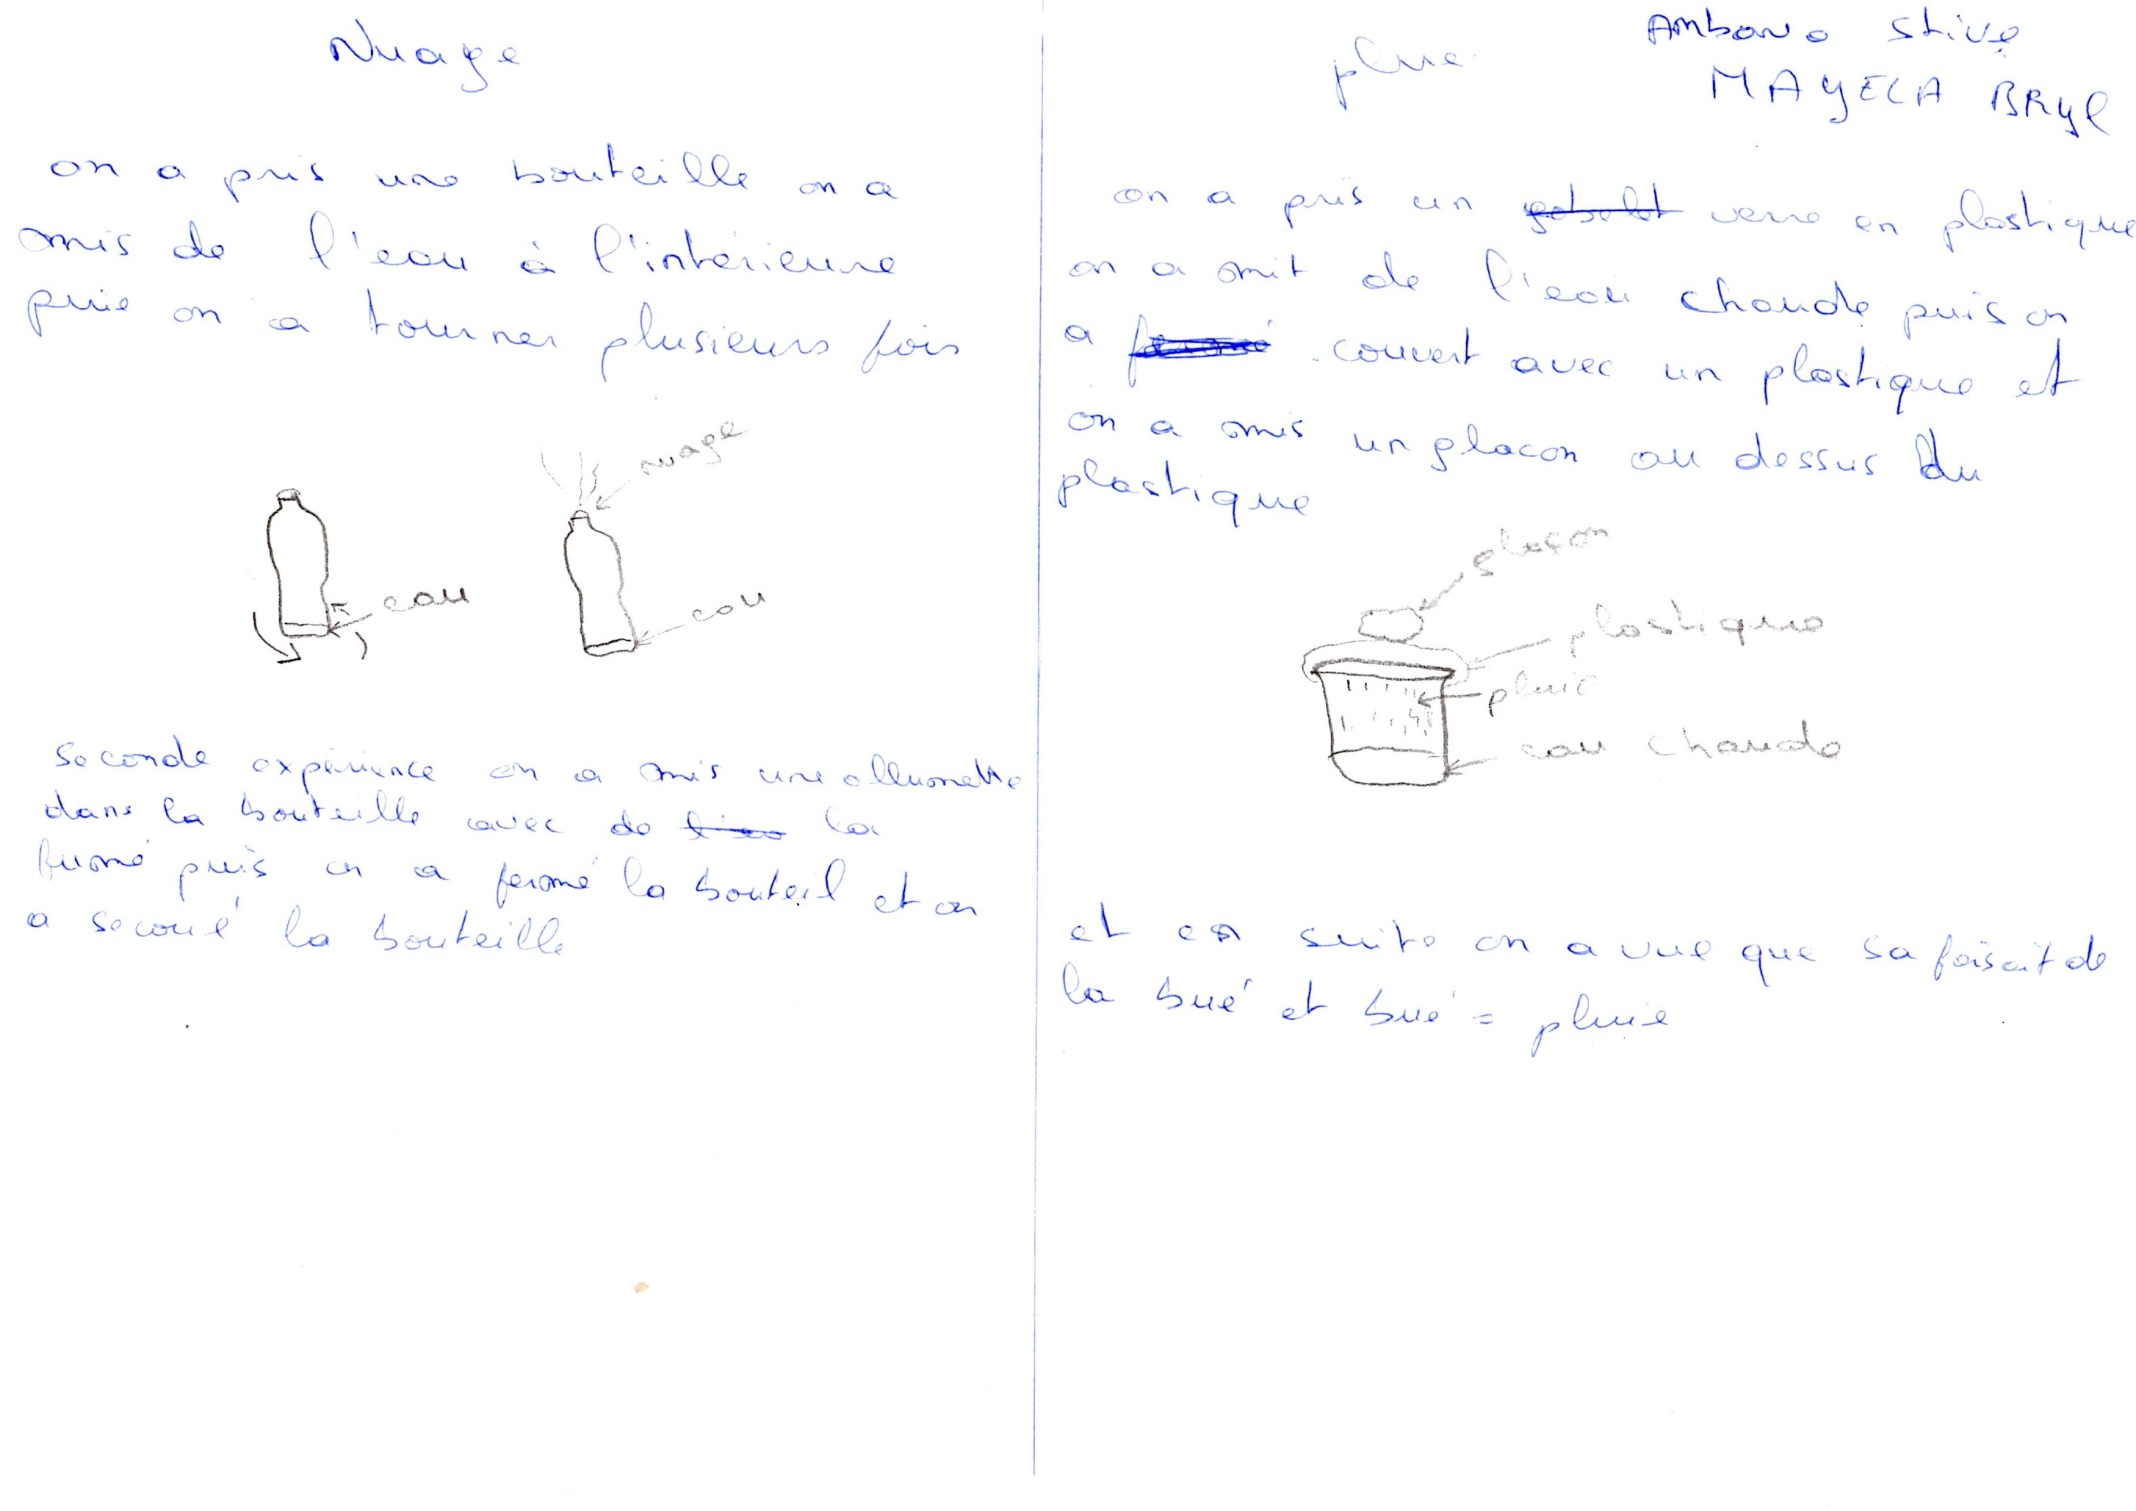 Nuage
on a pris une bouteille on a
mis de l'eau à l'intérieure
puie on a tourner plusieurs fois
nuage
eau
eau
seconde expérience on a mis une allumette
dans la bouteille avec de la
fumé puis on a fermé la bouteil et on
a secoué la bouteille
Ambono Stive
MAYELA BRYl
pluie
on a pris un gobelet verre en plastique
on a mit de l'eau chaude puis on
a fermé couvert avec un plastique et
on a mis un glacon au dessus du
plastique
glaçon
plastique
pluie
eau chaude
et en suite on a vue que sa faisait de
la bué et bué = pluie